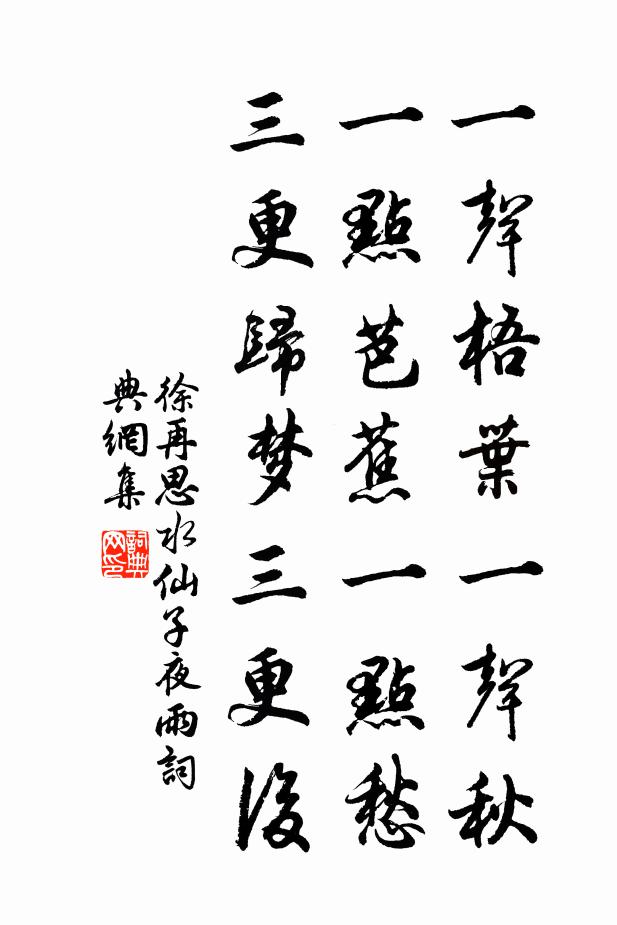 一聲梧葉一聲秋
一點芭蕉一點愁
三更歸梦三更後
徐再思水仙子夜雨詞
典網集
詞典
网印